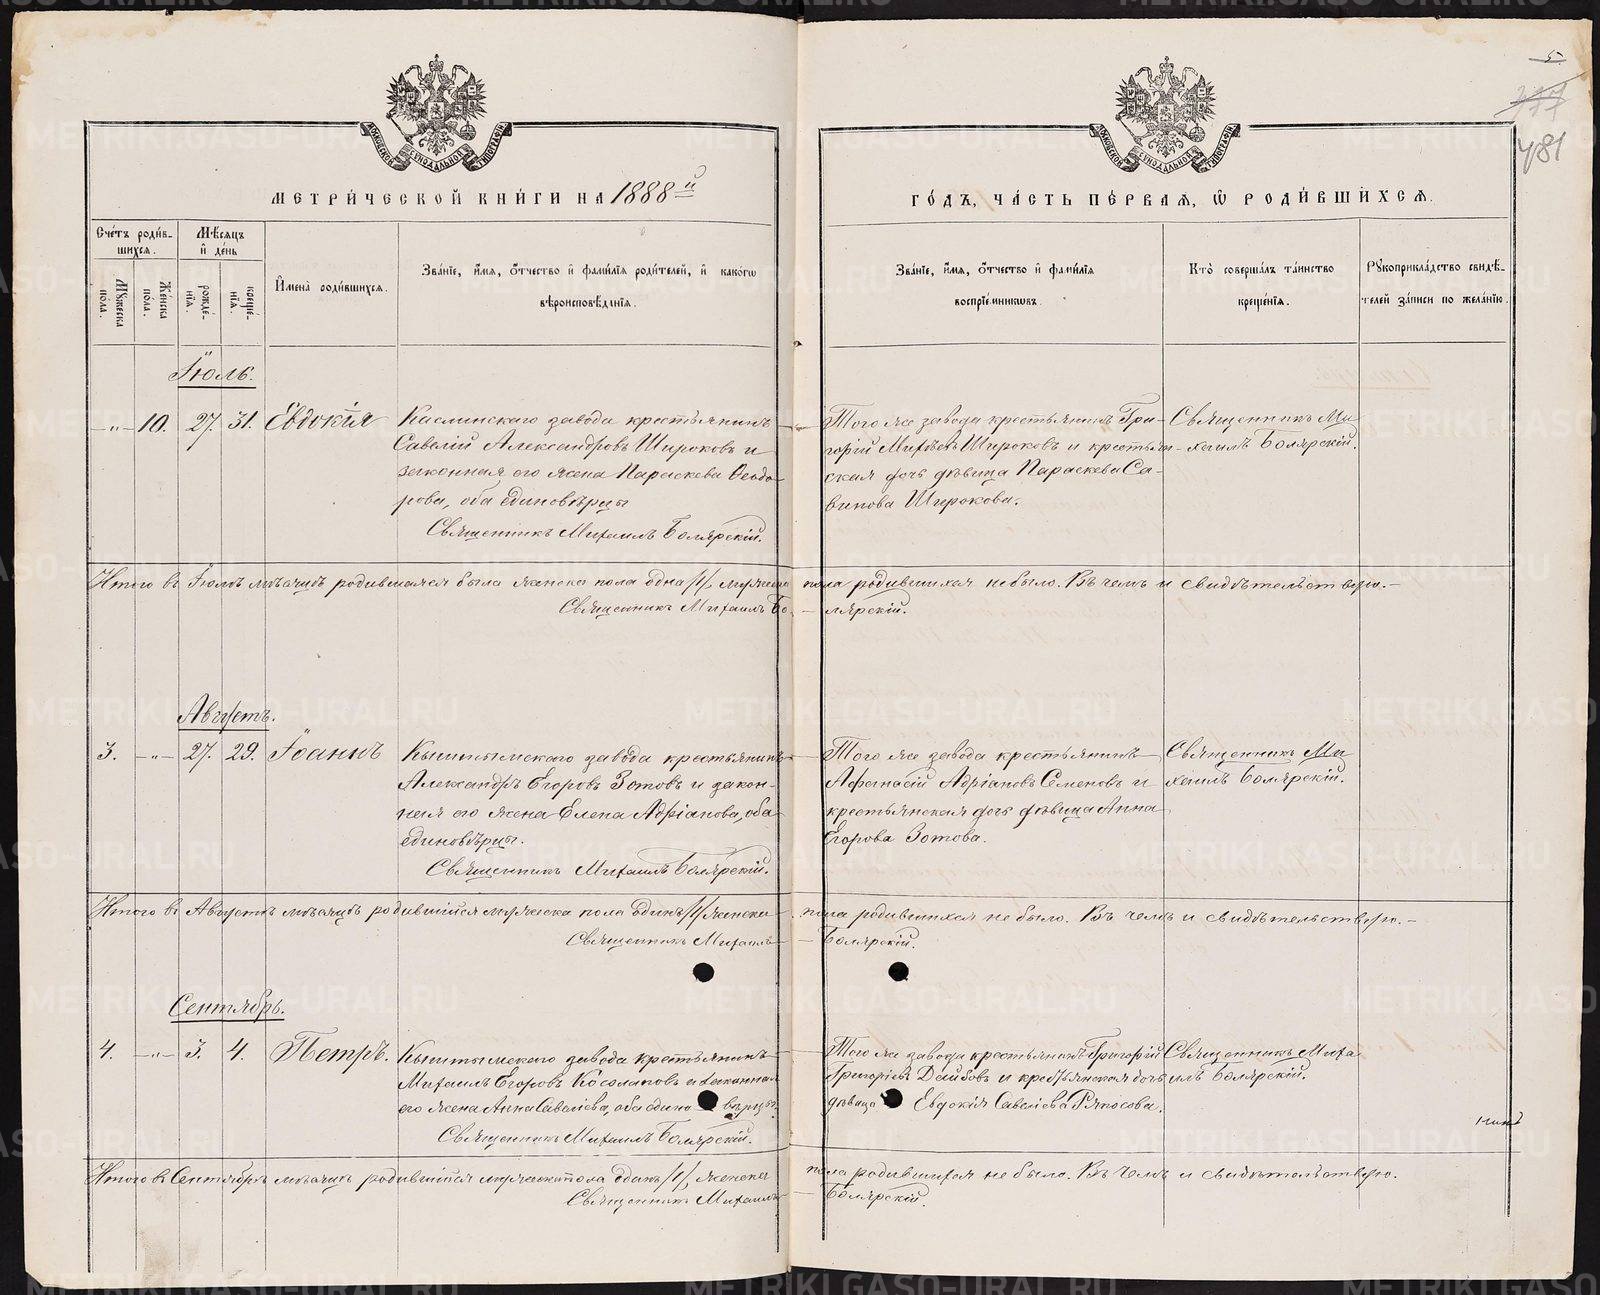 5
477
481
МЕТРИ́ЧЕСКОЙ КНИ́ГИ НА 1888й
ГО́ДЪ, ЧА́СТЬ ПЕ́РВАѦ, Ѽ РОДИ́ВШИХСѦ.
Сче́тъ роди́в-
шихсѧ.
Мѣ́сѧцъ
и҆ де́нь
Мꙋ́жеска
по́ла.
Же́нска
по́ла.
рожде́-
нїѧ.
креще́-
нїѧ.
И҆мена̀ роди́вшихсѧ.
Зва́нїе, и҆́мѧ, ѻ҆́тчество и҆ фами́лїѧ роди́телей, и҆ како́гѡ
вѣроисповѣ́данїѧ.
Зва́нїе, и҆́мѧ, ѻ҆́тчество и҆ фами́лїѧ
воспрїе́мникѡвъ.
Кто̀ соверша́лъ та́инство
креще́нїѧ.
Рꙋкоприкла́дство свидѣ́-
телей за́писи по жела́нїю.
Іюль.
-„- 10. 27. 31. Евдокія
Каслинскаго завода крестьянинъ
Савелій Александровъ Широковъ и
законная его жена Параскева Ѳеодо-
рова, оба единовѣрцы
Священникъ Михаилъ Боярскій.
Того же завода крестьянинъ Гри-
горій Широковъ и крестьян-
ская дочь дѣвица Параскева Са-
винова Широкова.
Священникъ Ми-
хаилъ Боярскій.
Итого въ Іюлѣ мѣсяцѣ родившаяся была женска пола одна /1/, мужеска пола родившихся небыло. Въ чемъ и свидѣтельствую.-
Священникъ Михаилъ Бо- -лярскій.
Августъ.
3. -„- 27. 29. Іоаннъ
Кыштымскаго завода крестьянинъ
Александръ Егоровъ Зотовъ и закон-
ная его жена Елена Адріанова, оба
единовѣрцы.
Священникъ Михаилъ Боярскій.
Того же завода крестьянинъ
Афанасій Адріановъ Семеновъ и
крестьянская дочь дѣвица Анна
Егорова Зотова.
Священникъ Ми-
хаилъ Боярскій.
Итого въ Августѣ мѣсяцѣ родившійся мужеска пола одинъ /1/ женска пола родившихся не было. Въ чемъ и свидѣтельствую.-
Священникъ Михаилъ Боярскій.
Сентябрь.
4. -„- 3. 4. Петръ.
Кыштымскаго завода крестьянинъ
Михаилъ Егоровъ Косолаповъ и законная
его жена Анна Савеліева, оба едино вѣрцы.
Священникъ Михаилъ Боярскій.
Того же завода крестьянинъ Григорій
Григорьевъ и крестьянская дочь
дѣвица Евдокія Савеліева Ряпосова.
Священникъ Миха
илъ Боярскій.
Итого въ Сентябрѣ мѣсяцѣ родившійся мужеска пола одинъ /1/, женска пола родившихся не было. Въ чемъ и свидѣтельствую.
Священникъ Михаилъ Боярскій.